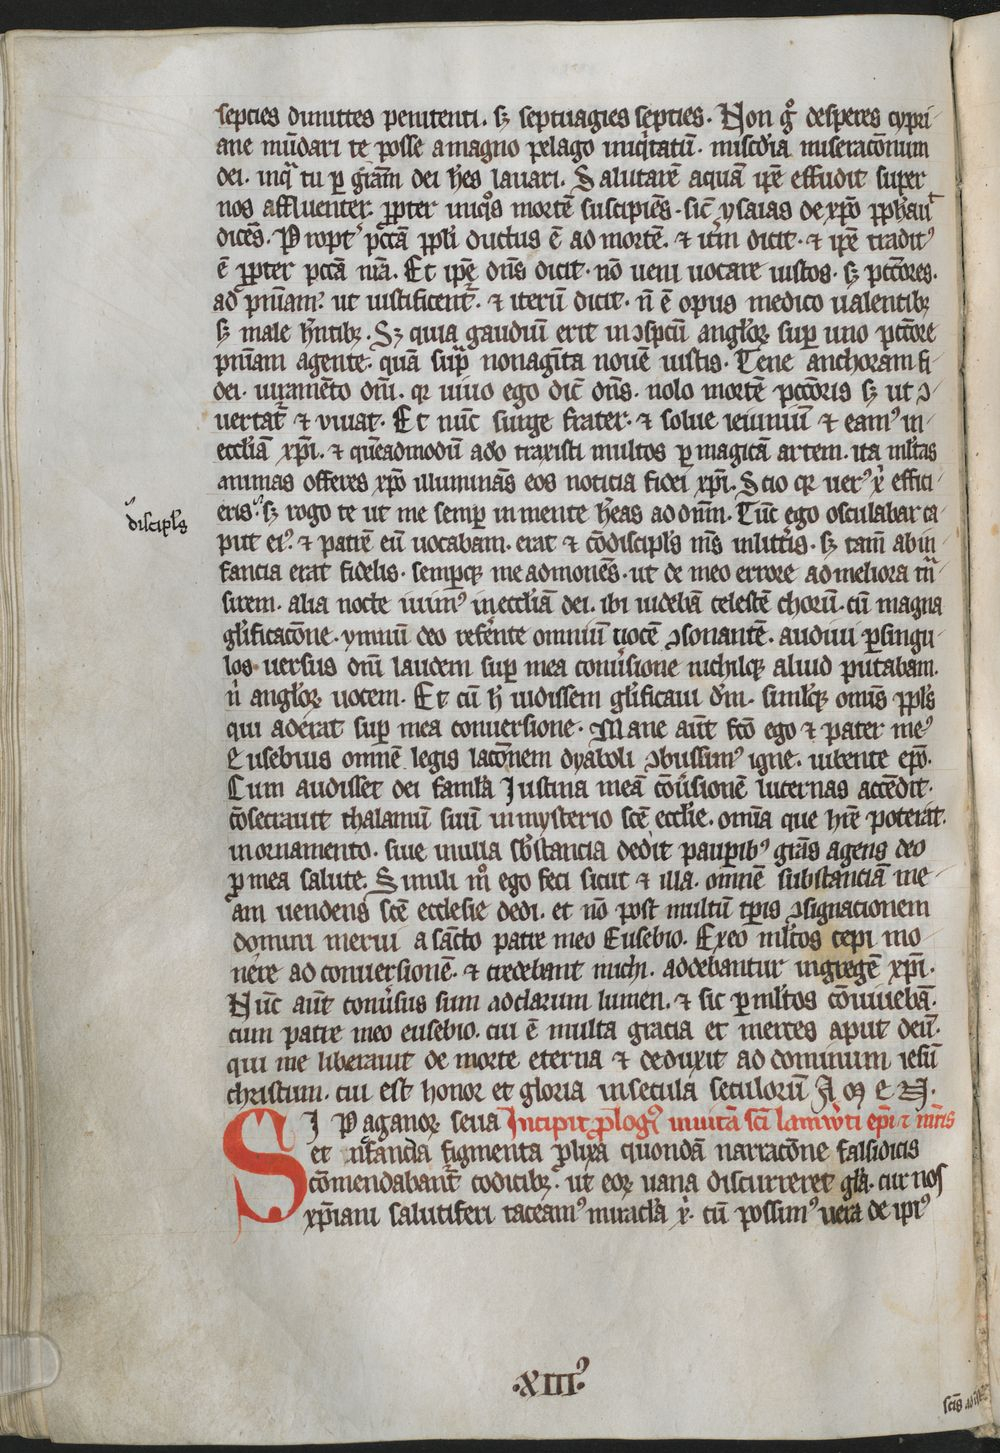 septies dimittes penitenti. sꝫ septuagies septies. Non gͦ desperes cypri-
ane mūdari te posse a magno pelago iniqͥtatū. miscd̓ia miseracōnum
dei. inqͣ tu ꝑ grām dei hēs lavari. Salutarē aquā ip̄e effudit super
nos affluenter. ꝓpter iniqͦs mortē suscipiēs. sic̄ ysaias de xp̄o ꝓph̄auͭ
dicēs. Propt̓ pctā ppl̓i ductus ē ad mortē. ⁊ itm̄ dicit. ⁊ ip̄e traditꝰ
ē ꝓpter pctā nr̄a. Et ip̄e dn̄s dicit. nō ueni uocare iustos. sꝫ pctōres.
ad pn̄iam. ut iustificent̄. ⁊ iterū dicit. n̄ ē opus medico ualentibꝫ
sꝫ male hn̄tibꝫ. Sꝫ quia gaudiū erit in ꝯspc̄ū angl̓oꝝ. suꝑ uno pctōre
pn̄iam agente. quā supͣ nonagīta nouē iustis. Tene anchoram fi-
dei. iuramēto dn̄i. qꝛ uiuo ego dic̄ dn̄s. nolo mortē pctōris sꝫ ut ꝯ-
uertat̄ ⁊ viuat. Et nūc surge frater. ⁊ solue ieiuniū ⁊ eamꝰ in-
eccl̓iā xp̄i. ⁊ quēadmodū ado traxisti multos ꝑ magicā artem. ita ml̓tas
animas offeres xp̄o illuminās eos noticia fidei xp̄i. Scio qꝛ uerꝰ xͥ effici-
eris. sꝫ rogo te ut me semꝑ in mente h̄eas ad dn̄m. Tūc ego osculabar ca-
discipl̓s
put eiꝰ. ⁊ patrē eū uocabam. erat ⁊ cōdiscipl̓s m̄s in litt̓is. sꝫ tam̄ ab in-
fancia erat fidelis. semꝑqꝫ me admonēs. ut de meo errore ad meliora trͣn-
sirem. alia nocte iuimꝰ in eccl̓iā dei. ibi uidebā celestē chorū. cū magna
gl̓ificacōne. ymnū deo refe̓nte omniū uocē ꝯsonantē. audiui ꝑ singu-
los uersus dn̄i laudem suꝑ mea conu̓sione nichilqꝫ aliud putabam.
nͥ angl̓oꝝ uocem. Et cū h̄ uidissem gl̓ificaui dm̄. simil̓qꝫ omīs ppl̓s
qui aderat suꝑ mea conuersione. Mane aūt fc̄o ego ⁊ pater meꝰ
Eusebius omnē legis laccōnem dyaboli ꝯbussimꝰ igne. iubente ep̄o.
Cum audisset dei faml̓a Justina meā cōu̓sionē lucernas accēdit.
cōsecrauit thalamū suū in mysterio scē eccl̓ie. omīa que hr̄e poterat.
in ornamento. siue in illa sb̓stancia dedit pauꝑibꝰ grās agens deo
ꝓ mea salute. Simili mͦ ego feci sicut ⁊ illa. omnē substanciā me-
am uendens scē ecclesie dedi. et nō post multū tp̄is ꝯsignacionem
domini merui a sancto patre meo Eusebio. Exeo ml̓tos cepi mo-
nere ad conuersionē. ⁊ credebant michi. addebantur in gregē xp̄i.
Nūc aūt conu̓sus sum ad clarum lumen. ⁊ sic ꝑ ml̓tos cōuiuebā.
cum patre meo eusebio. cui ē multa gracia et merces aput deū.
qui me liberauit de morte eterna ⁊ deduxit ad dominum iesū
christum. cui est honor et gloria in secula seculorū AMEN.
SI Paganoꝝ seua Incipit ꝓlogꝰ in uitā sc̄i lamb̓ti ep̄i ⁊ mr̄is
et nefanda figmenta ꝓlixa quondā narracōne falsidicis
cōmendabant̄ codicibꝫ. ut eoꝝ uana discurreret gl̓a. cur nos
xp̄iani salutiferi taceamꝰ miracl̓a xͥ. cū possimꝰ uera de ip̄iꝰ
.XIIIꝰ.